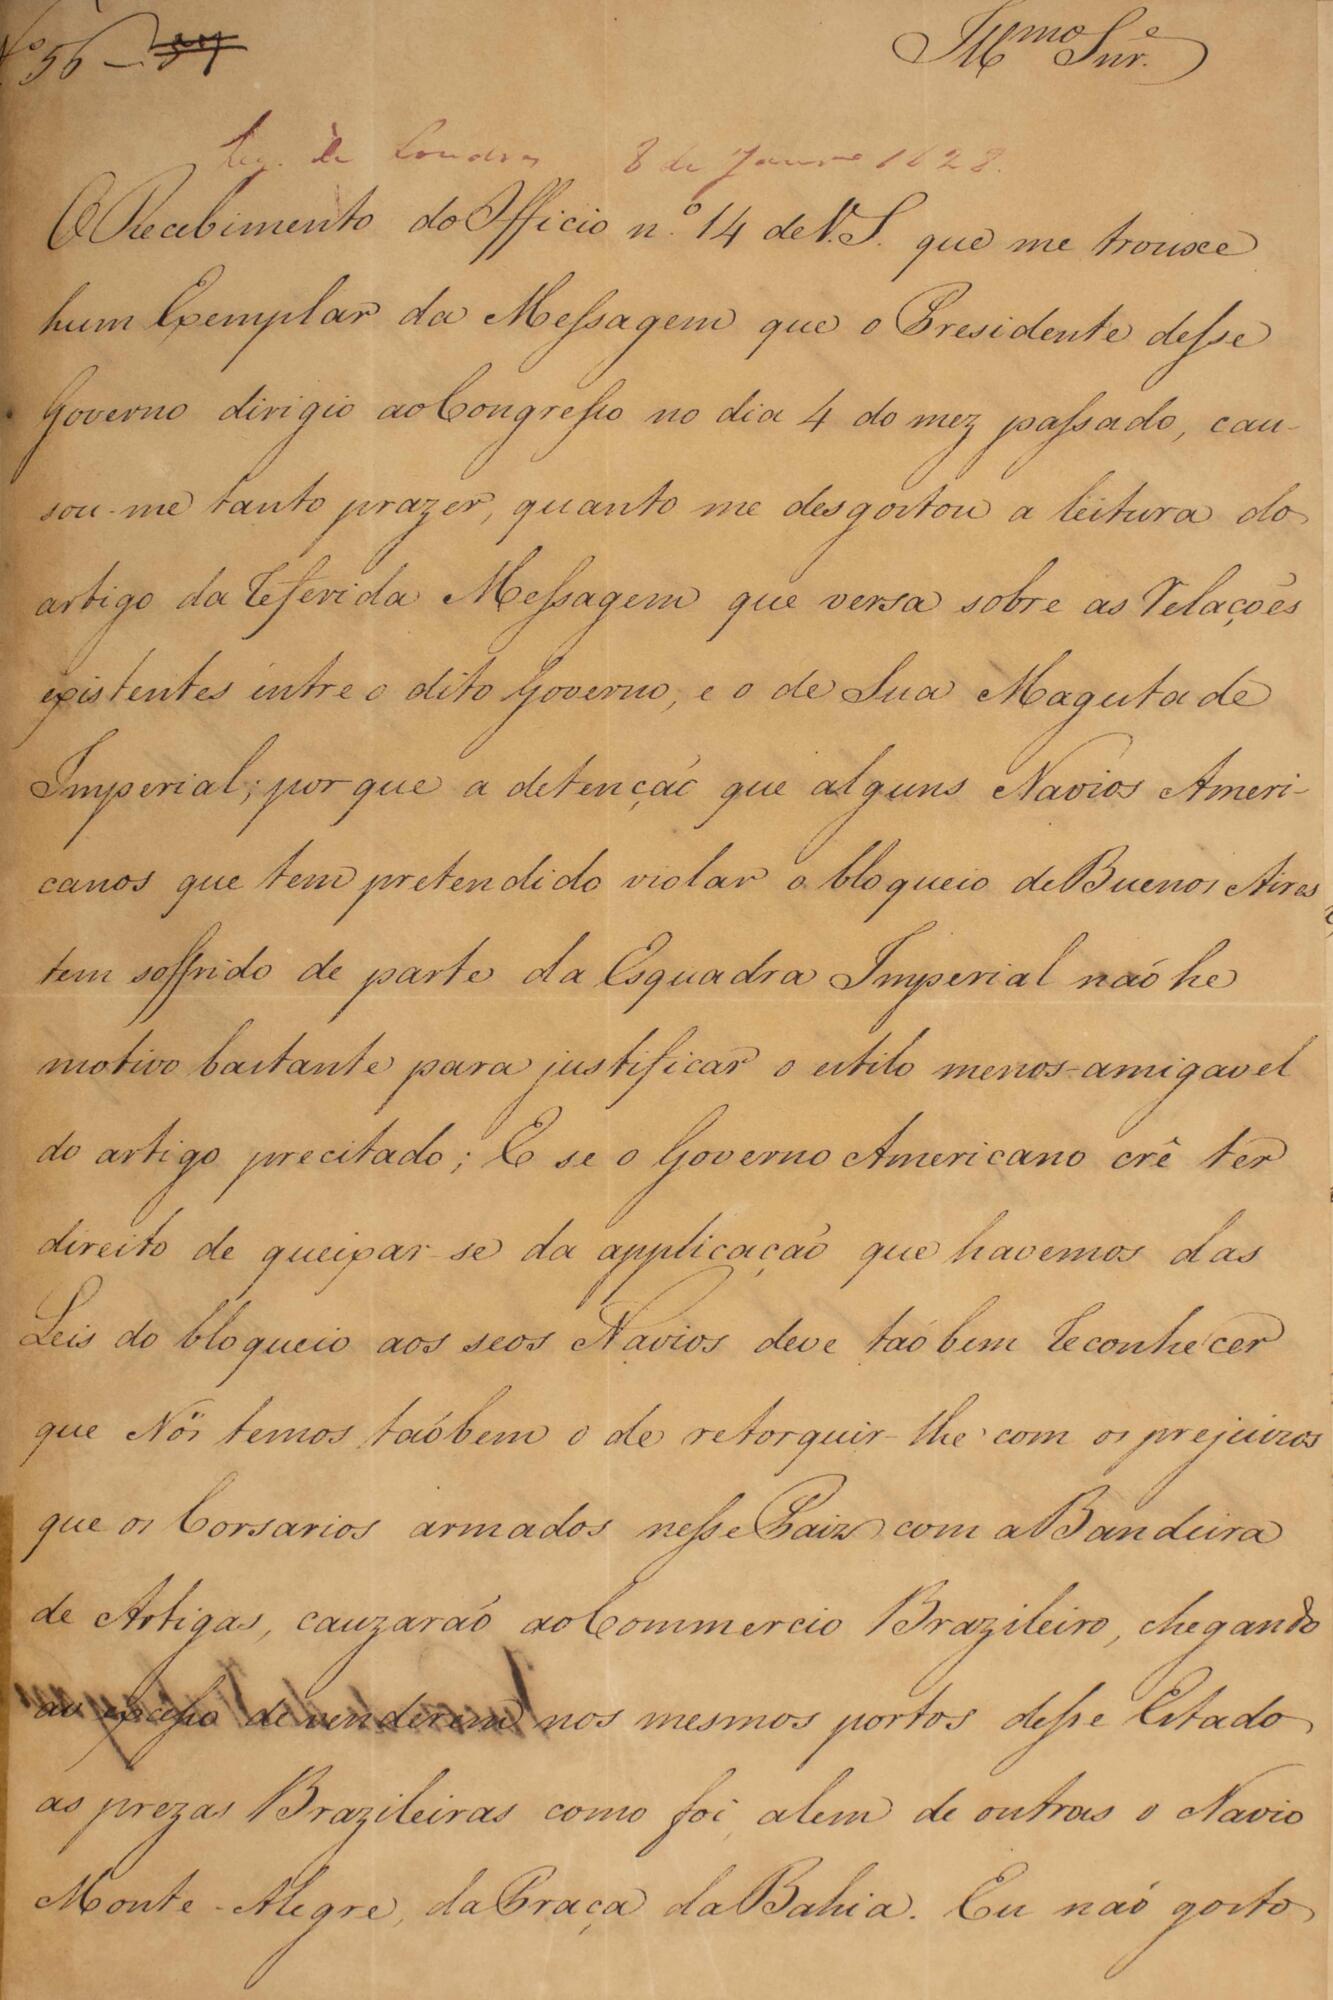 Nº 56 -
Illmo Snr.e
Leg. de Londres 8 de Janro 1828.
O Recebimento do Officio nº 14 de V.S. que me trouxe
hum Exemplar da Messagem que o Presidente desse
Governo dirigio ao Congresso no dia 4 do mez passado, cau-
sou-me tanto prazer, quanto me desgostou a leitura do
artigo da referida Messagem que versa sobre as relações
existentes intre o dito Governo, e o de Sua Magestade
Imperial; por que a detenção que alguns Navios Ameri-
canos que tem pretendido violar o bloqueio de Buenos Aires
tem soffrido de parte da Esquadra Imperial naõ he
motivo bastante para justificar o estilo menos-amigavel
do artigo precitado; E se o Governo Americano crê ter
direito de queixar-se da applicaçaõ que havemos das
Leis do bloqueio aos seos Navios deve taõbem reconhecer
que Nós temos taõbem o de retorquir-lhe com os prejuizos
que os Corsarios armados nesse Paiz com a Bandeira
de Artigas, cauzaraõ ao Commercio Brazileiro, chegando
ao excesso de venderem nos mesmos portos desse Estado
as prezas Brazileiras como foi, alem de outras o Navio
Monte-Alegre, da Praça da Bahia. Eu naõ gosto